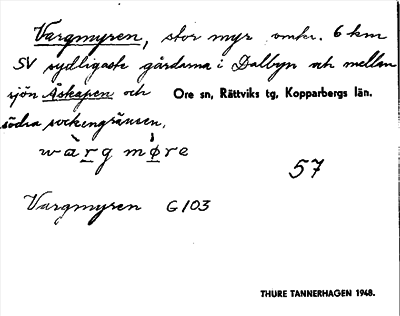 Vargmyren, stor myr omkr. 6 km
SV sydligaste gårdarna i Dalbyn och mellan
sjön Äskapen och Ore sn, Rättviks tg, Kopparbergs län.
södra sockengränsen.
wàrg mǿre
57
Vargmyren G103
THURE TANNERHAGEN 1948.